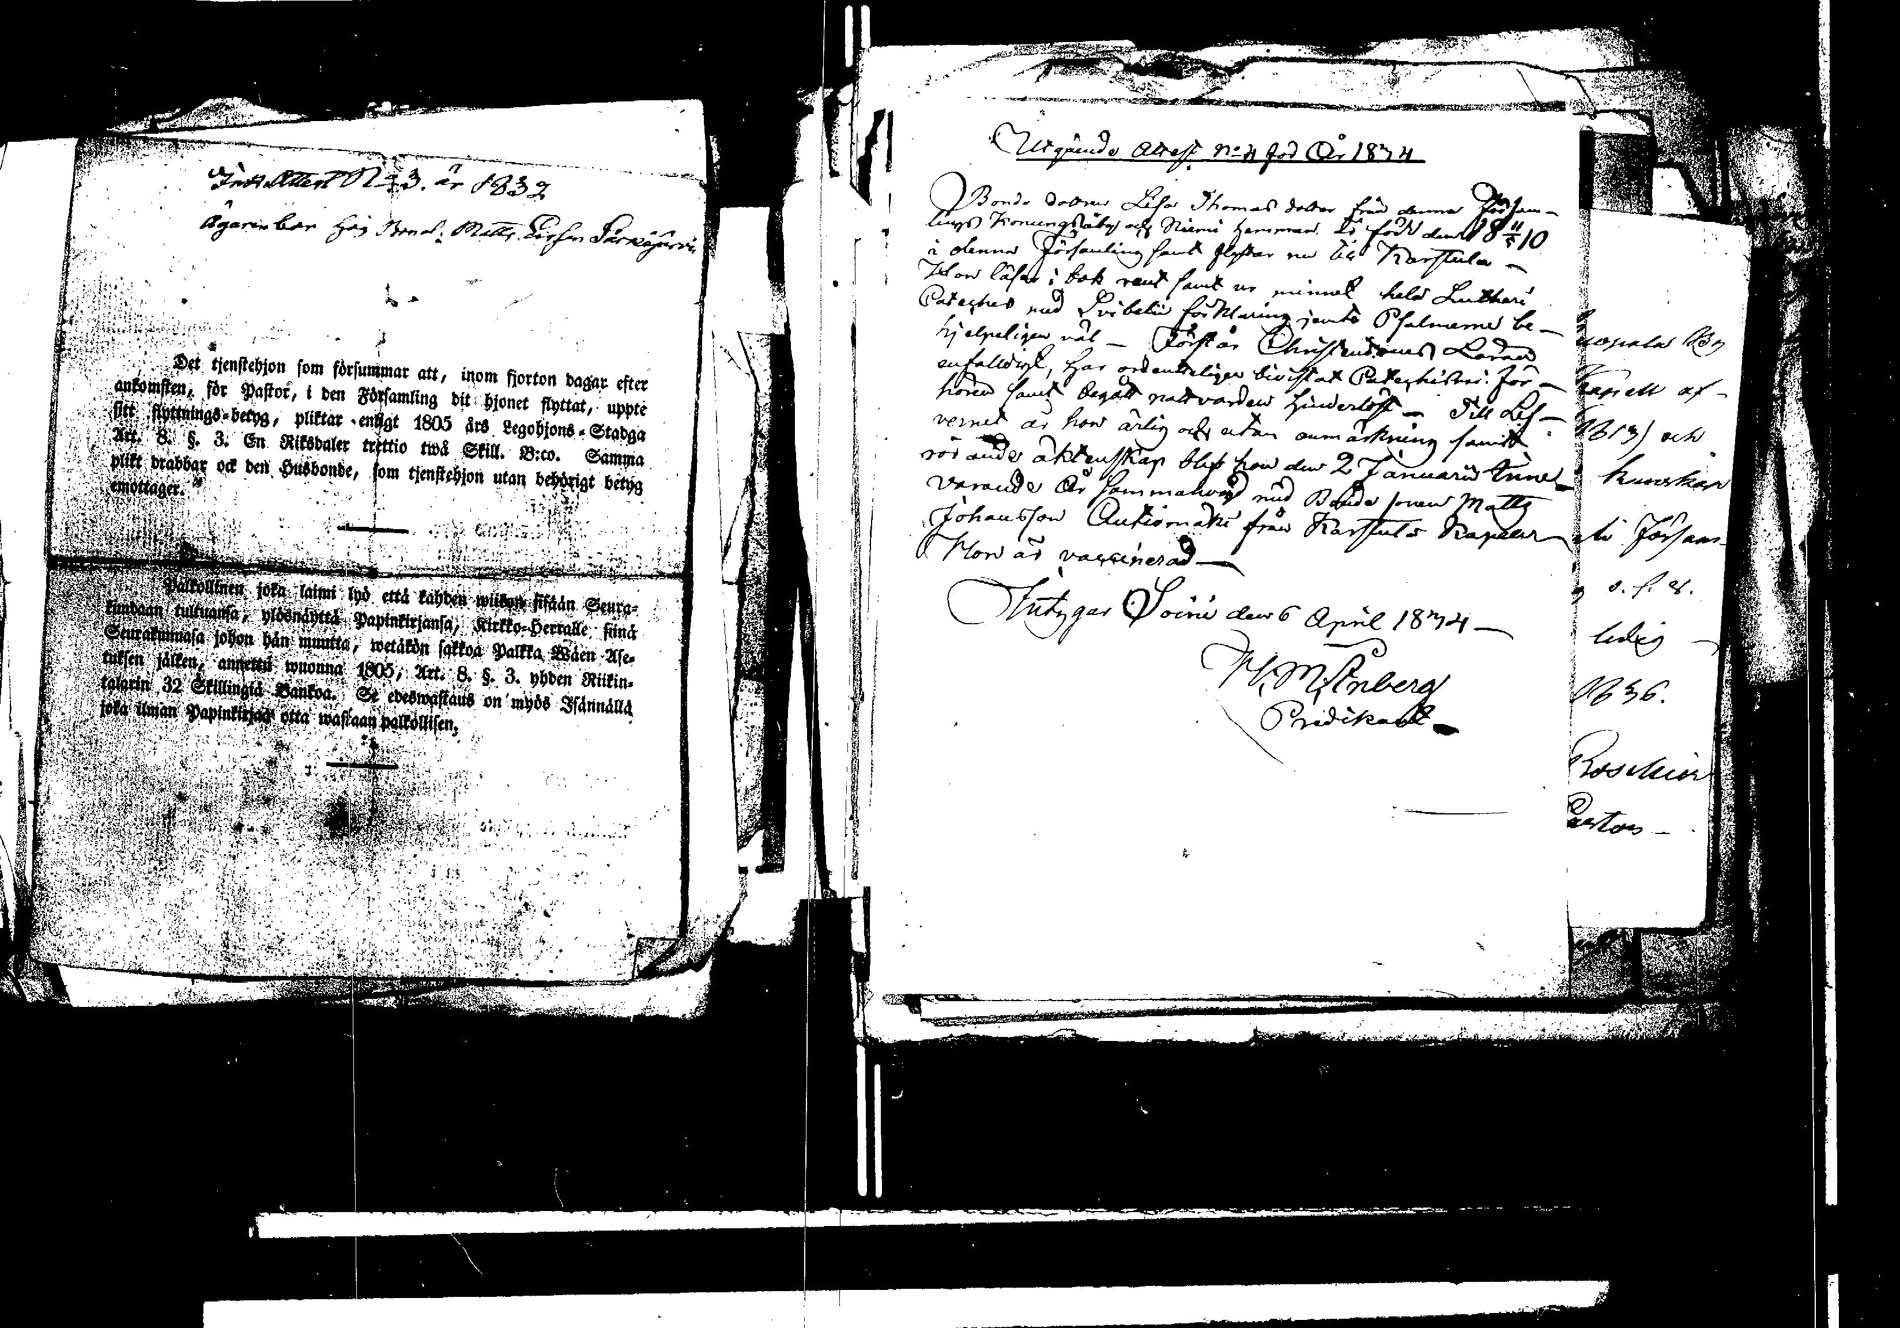 Inst. Attest N 3. år 1832
Ägarinnan
Det tjenstehjon som försummar att, inom fjorton dagar efter
ankomsten, för Pastor, i den Församling dit hjonet flyttat, uppte
sitt flyttnings-betyg, pliktar enligt 1805 års Legohjons-Stadga
Art. 8. §. 3. En Riksdaler trettio twå Skill. B:co. Samma
plikt drabbar ock den Husbonde, som tjenstehjon utan behörigt betyg
emottager.
Palkollinen joka laimi lyö että kahden wiikon sisään Seura-
kundaan tultuansa, ylösnäyttä Papinkirjansa, Kirkko-Herralle siinä
Seurakunnasa johon hän muutta, wetäkön sakkoa Palkka Wäen Ase-
tuksen jälken, annettu wuonna 1805, Art. 8. §. 3. yhden Riikin-
talarin 32 Skillingiä Bankoa. Se edeswastaus on myös Isännällä
joka ilman Papinkirjaa otta wastaan palkollisen.
Utgående Attest No 4 för År 1834
Bonde dottren Lisa Thomas dotter från denna Försam-
lings Konungsåby och Niemi hemman är född den 18 11/5 10
i denna Församling samt flyttar nu till Karstula
Hon läser i bok rent samt ur minnet hela Lutheri
Cateches med Svebelii förklaring jemte Psalmerne be-
hjelpeligen väl – Förstår Christendomens Läran
enfaldigt, har ordenteligen bivistat Catechismi För-
hören samt begått nattvarden hinderlöst – Till Lef-
vernet är hon ärlig och utan anmärkning samt
rörande äktenskap blef hon den 2 Januarii inne-
varande År sammanvigd med Bonde sonen Matts
Johansson Autiomäki från Karstula Kapell
Hon är vaccinerad –
Intygar Soini den 6 April 1834 –
Predikant
Kapell af
och
kunskap
Församl
s. f. d.
ledig
1836.
Roschier
Pastor